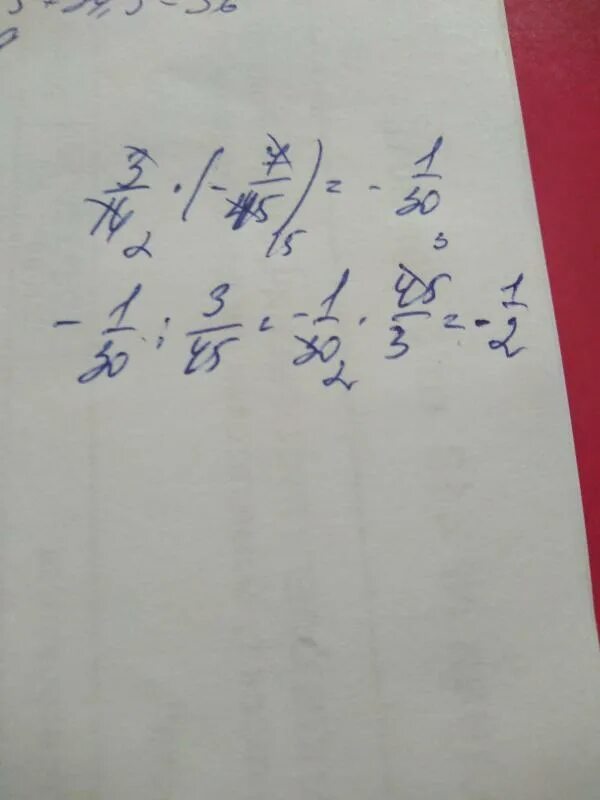 3/14 2 · (- 7/45 15) = - 1/30
- 1/30 : 3/45 = - 1/30 2 · 45 3/3 = - 1/2